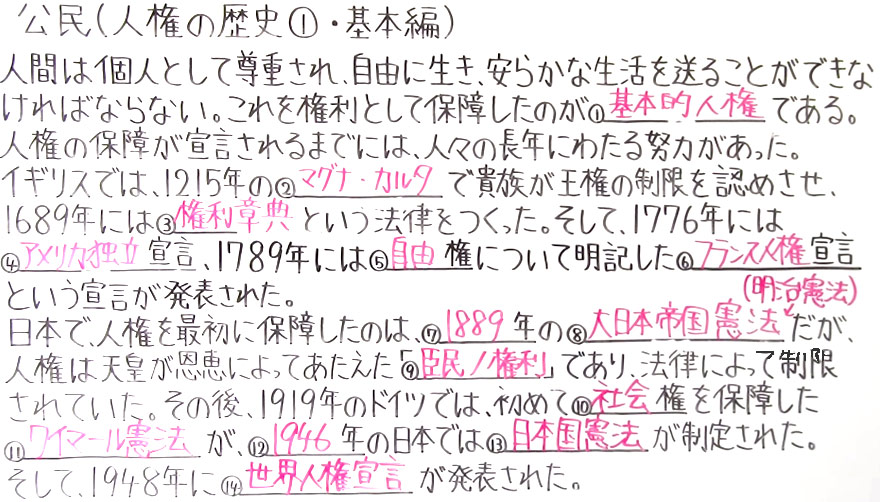 公民(人権の歴史①・基本編)
人間は個人として尊重され、自由に生き、安らかな生活を送ることができな
ければならない。これを権利として保障したのが①基本的人権である。
人権の保障が宣言されるまでには、人々の長年にわたる努力があった。
イギリスでは、1215年の②マグナ・カルタで貴族が王権の制限を認めさせ、
1689年には③権利章典という法律をつくった。そして、1776年には
④アメリカ独立宣言、1789年には⑤自由権について明記した⑥フランス人権宣言
という宣言が発表された。
(明治憲法)
日本で、人権を最初に保障したのは、⑦1889年の⑧大日本帝国憲法だが、
人権は天皇が恩恵によってあたえた「⑨臣民ノ権利」であり、法律によって制限
されていた。その後、1919年のドイツでは、初めて⑩社会権を保障した
⑪ワイマール憲法が、⑫1946年の日本では⑬日本国憲法が制定された。
そして、1948年に⑭世界人権宣言が発表された。